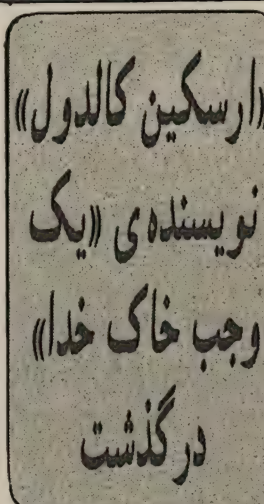 «ارسکین کالدول»
نویسنده‌ی «یک
وجب خاک خدا»
درگذشت